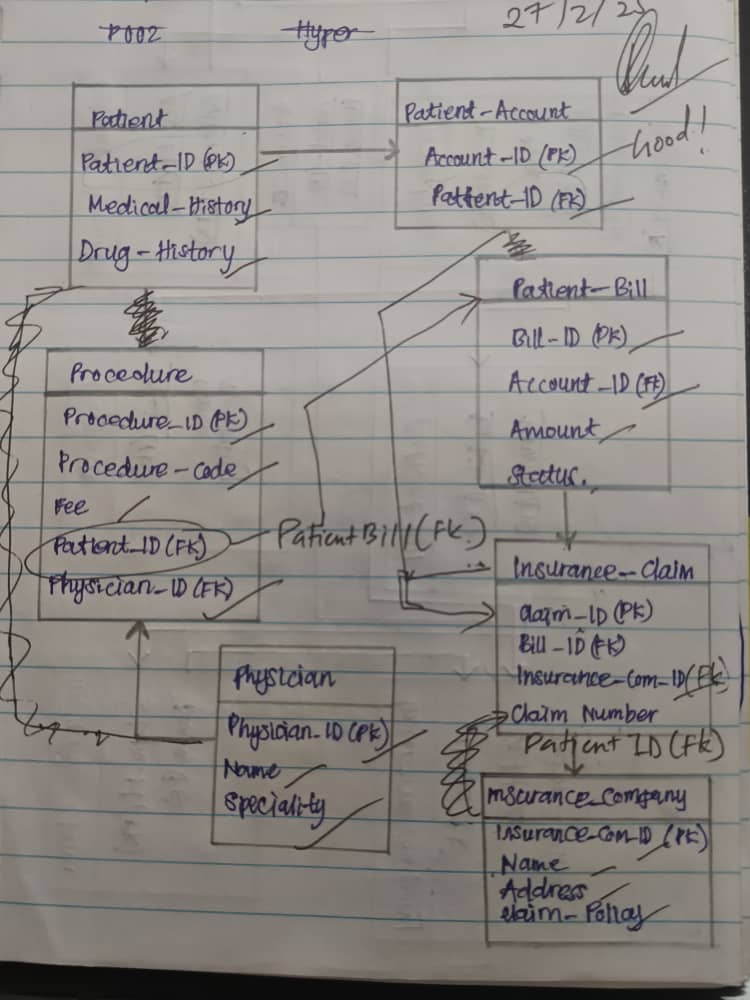 P002 Hyper
27/2/25
Patient
Patient_ID (PK)
Medical-History
Drug-History
Patient-Account
Account-ID (PK)
Patient-ID (FK)
Good!
Patient-Bill
Bill-ID (PK)
Account_ID (FK)
Amount
Status.
Procedure
Procedure_ID (PK)
Procedure-code
Fee
Patient_ID (FK)
Physician_ID (FK)
PatientBill (FK)
Insurance-Claim
Claim_ID (PK)
Bill-ID (FK)
Insurance-Com-ID (FK)
Claim Number
Patient ID (FK)
Physician
Physician_ID (PK)
Name
Speciality
Insurance_Company
Insurance-Com-ID (PK)
Name
Address
Claim-Policy